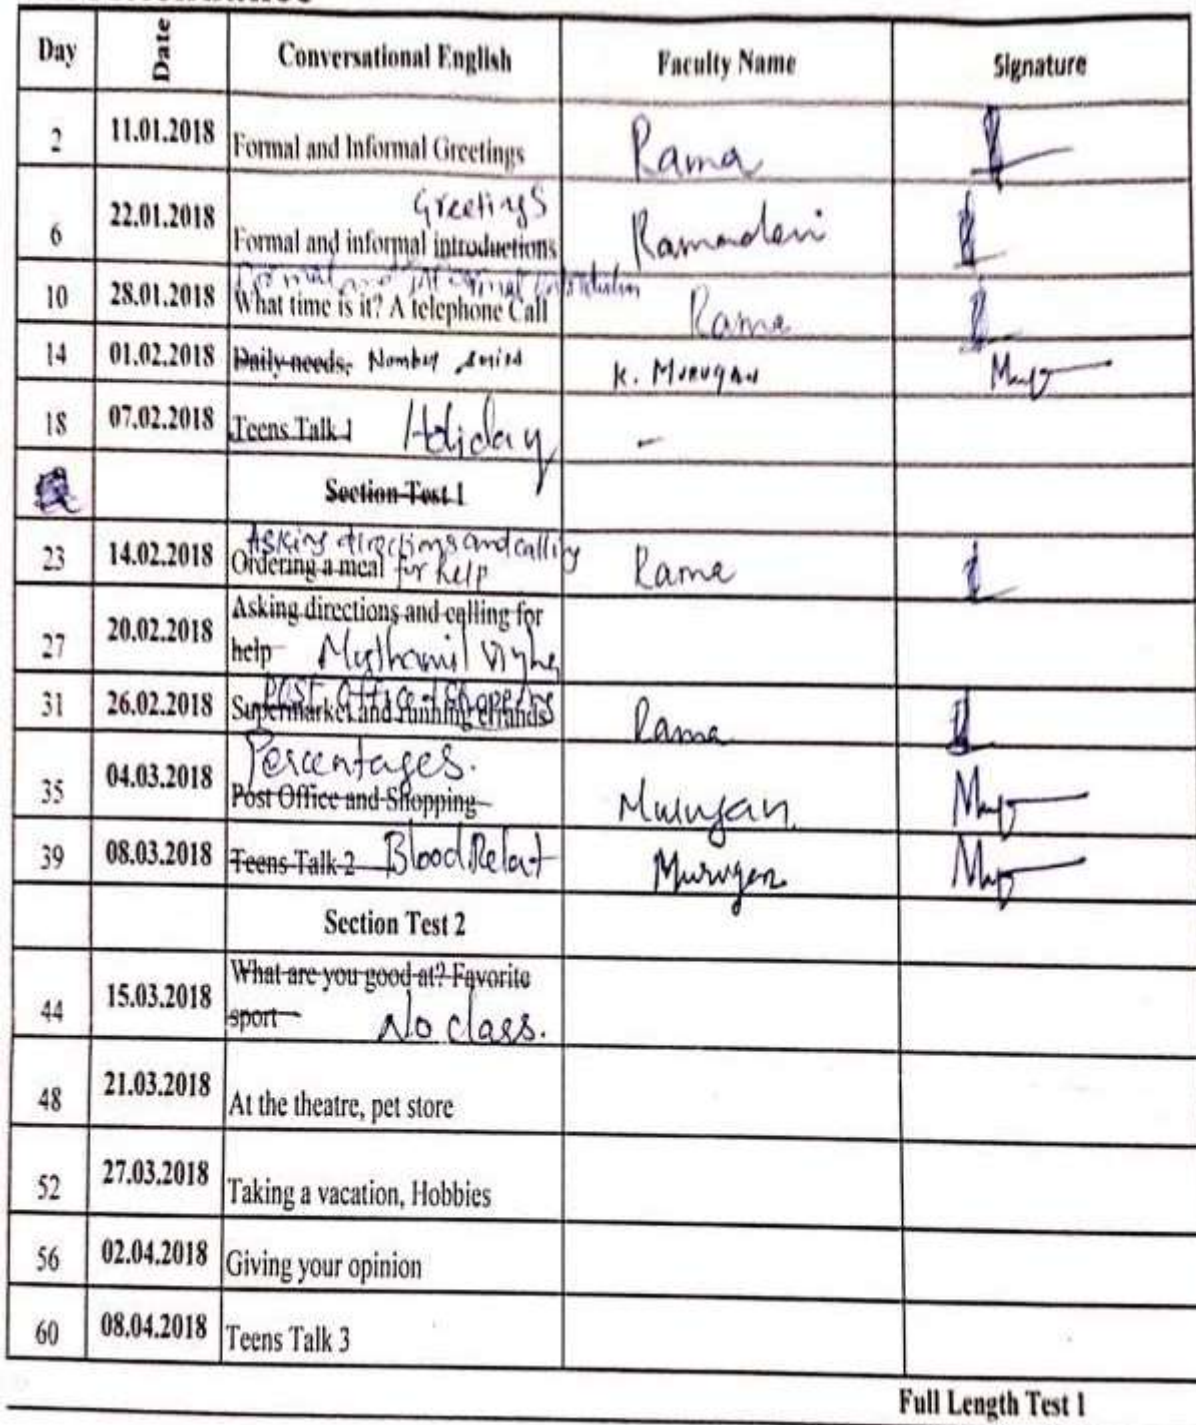 Day Date Conversational English Faculty Name Signature
2 11.01.2018 Formal and Informal Greetings Rama
Greetings
6 22.01.2018 Formal and informal introductions Ramadevi
Formal and informal introduction
10 28.01.2018 What time is it? A telephone Call Rama
14 01.02.2018 Daily needs, Number series K. Murugan
18 07.02.2018 Teens Talk 1 Holiday -
Section Test 1
Asking directions and calling
23 14.02.2018 Ordering a meal for help Rama
Asking directions and calling for
27 20.02.2018 help
Post Office & Shopping
31 26.02.2018 Supermarket and running errands Rama
Percentages.
35 04.03.2018 Post Office and Shopping Murugan
39 08.03.2018 Teens Talk 2 Blood Relat Murugan
Section Test 2
What are you good at? Favorite
44 15.03.2018 sport No class.
48 21.03.2018 At the theatre, pet store
52 27.03.2018 Taking a vacation, Hobbies
56 02.04.2018 Giving your opinion
60 08.04.2018 Teens Talk 3
Full Length Test 1